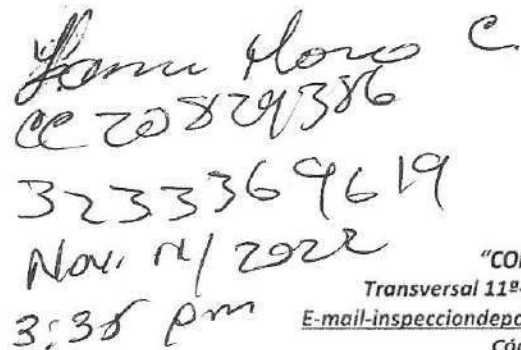 C.
CC 20829386
3233369619
Nov. / 2022
3:38 pm
"CO
Transversal 11ª
E-mail-inspecciondepo
Cód